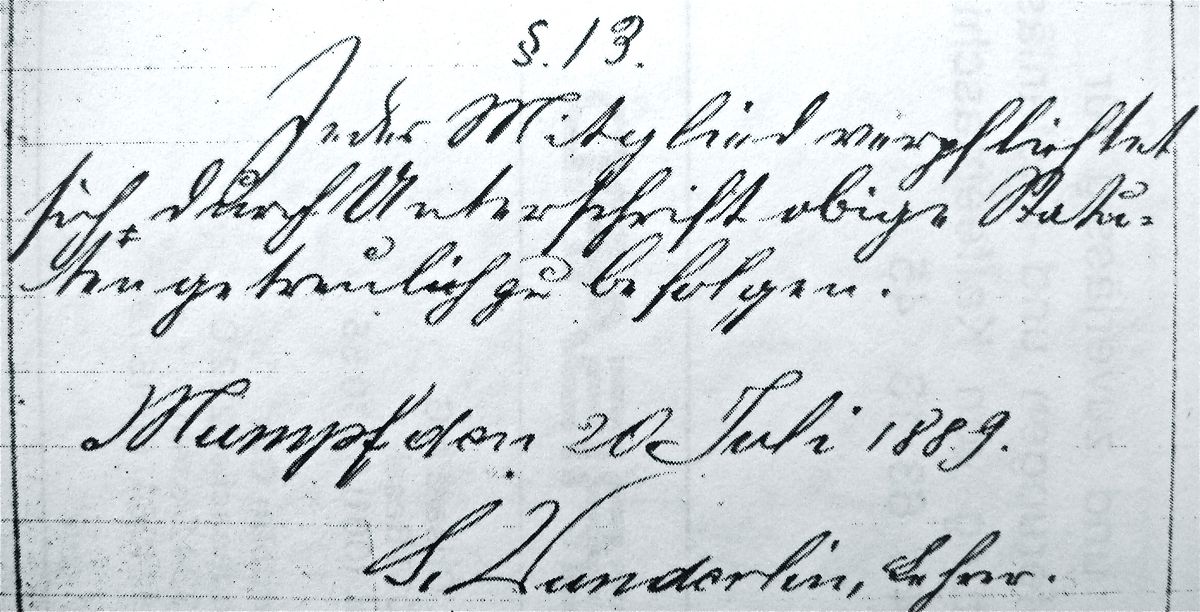 §. 13.
Jeder Mitglied verpflichtet
sich, durch Unterschrift obige Statu=
ten getreulich zu befolgen.
Mumpf den 20 Juli 1889.
G. Wunderlin, Lehrer.